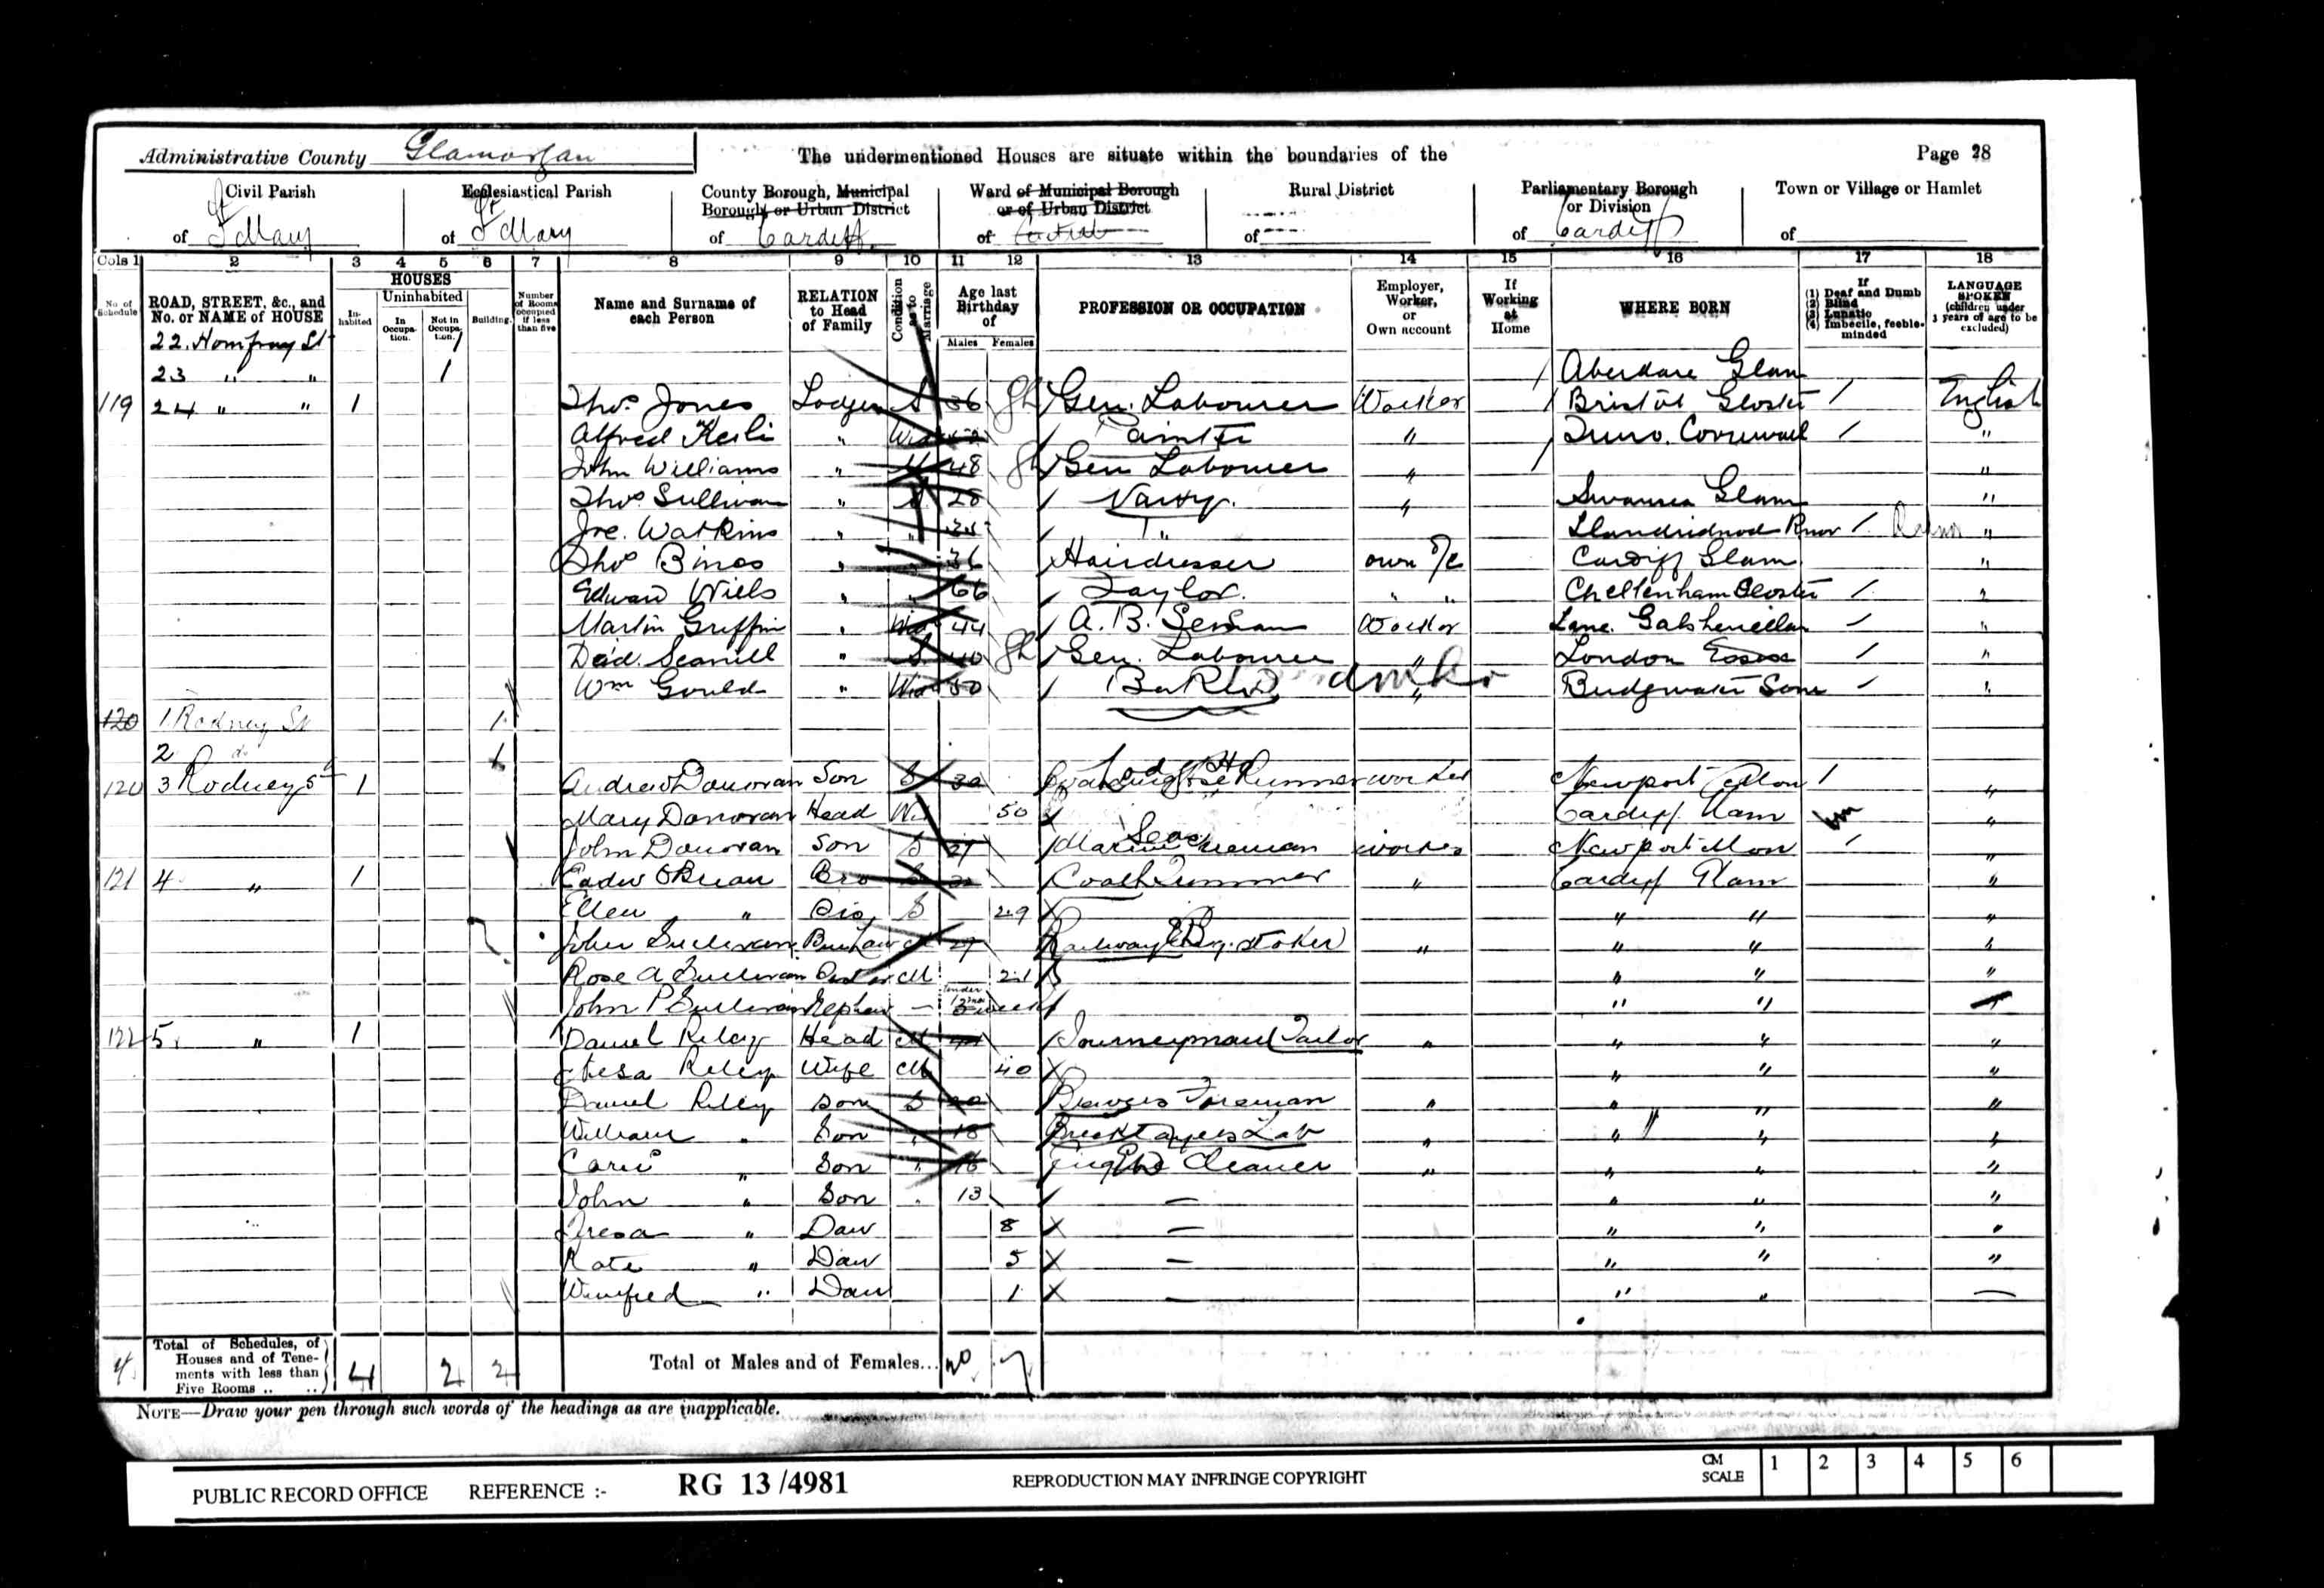 Administrative County Glamorgan The undermentioned Houses are situate within the boundaries of the Page 28
Civil Parish Ecclesiastical Parish County Borough, Municipal Ward of Municipal Borough Rural District Parliamentary Borough Town or Village or Hamlet
Borough or Urban District or of Urban District or Division
of St Mary of St Mary of Cardiff of of of Cardiff of
Cols 1 2 3 4 5 6 7 8 9 10 11 12 13 14 15 16 17 18
No of Schedule ROAD, STREET, &c., and No. or NAME of HOUSE HOUSES In-habited Uninhabited In Occupa-tion. Not in Occupa-tion. Building. Number of Rooms occupied if less than five Name and Surname of each Person RELATION to Head of Family Condition as to Marriage Age last Birthday of Males Females PROFESSION OR OCCUPATION Employer, Worker, or Own account If Working at Home WHERE BORN If (1) Deaf and Dumb (2) Blind (3) Lunatic (4) Imbecile, feeble-minded LANGUAGE SPOKEN (children under 3 years of age to be excluded)
22 Homfray St 1
23 " " 1 Aberdare Glam
119 24 " " 1 Thos Jones Lodger S 36 Gen. Labourer Worker Bristol Gloster English
Alfred " Wid Painter " Truro. Cornwall "
John Williams " 48 Gen Labourer " "
Thos Sullivan " S 28 Navvy. " Swansea Glam "
Joe. Watkins " " " Llandridnod Rnor "
Thos " 36 Hairdresser own a/c Cardiff Glam "
Edward Wills " " 66 Taylor. " " Cheltenham Gloster "
Martin Griffin " Wid 44 A. B. Seaman Worker "
" S. 40 Gen. Labourer " London Essex "
Wm Gould " Wid 50 Baker " Bridgwater Som "
120 1 Rodney St 1
2 do 1
120 3 Rodney St 1 Andrew Donovan Son S 30 worker Newport Mon "
Mary Donovan Head Wid 50 X Cardiff Glam "
John Donovan Son S Marine Fireman worker Newport Mon "
121 4 " 1 O Brian Bro S Coal Trimmer " Cardiff Glam "
Ellen " Sis S 29 X " " "
John Sullivan M Railway Eng. Stoker " " " "
Rose A Sullivan M 21 " " "
John P Sullivan Nephew — under 1 mo 3 weeks " "
122 5. " 1 Daniel Riley Head M Journeyman Tailor " " " "
Riley Wife M 40 X " " "
Daniel Riley Son S 20 Foreman " " " "
William " Son " 18 Bricklayers Lab " " " "
" Son " 16 Engine Cleaner " " " "
John " Son " 13 — " " "
Tresa " Daur 8 X — " " "
Kate " Daur 5 X — " " "
Winifred " Daur 1 X — " " —
4 Total of Schedules, of Houses and of Tene-ments with less than Five Rooms .. .. 4 2 2 Total of Males and of Females... 20 7
NOTE—Draw your pen through such words of the headings as are inapplicable.
PUBLIC RECORD OFFICE REFERENCE :- RG 13/4981 REPRODUCTION MAY INFRINGE COPYRIGHT CM SCALE 1 2 3 4 5 6